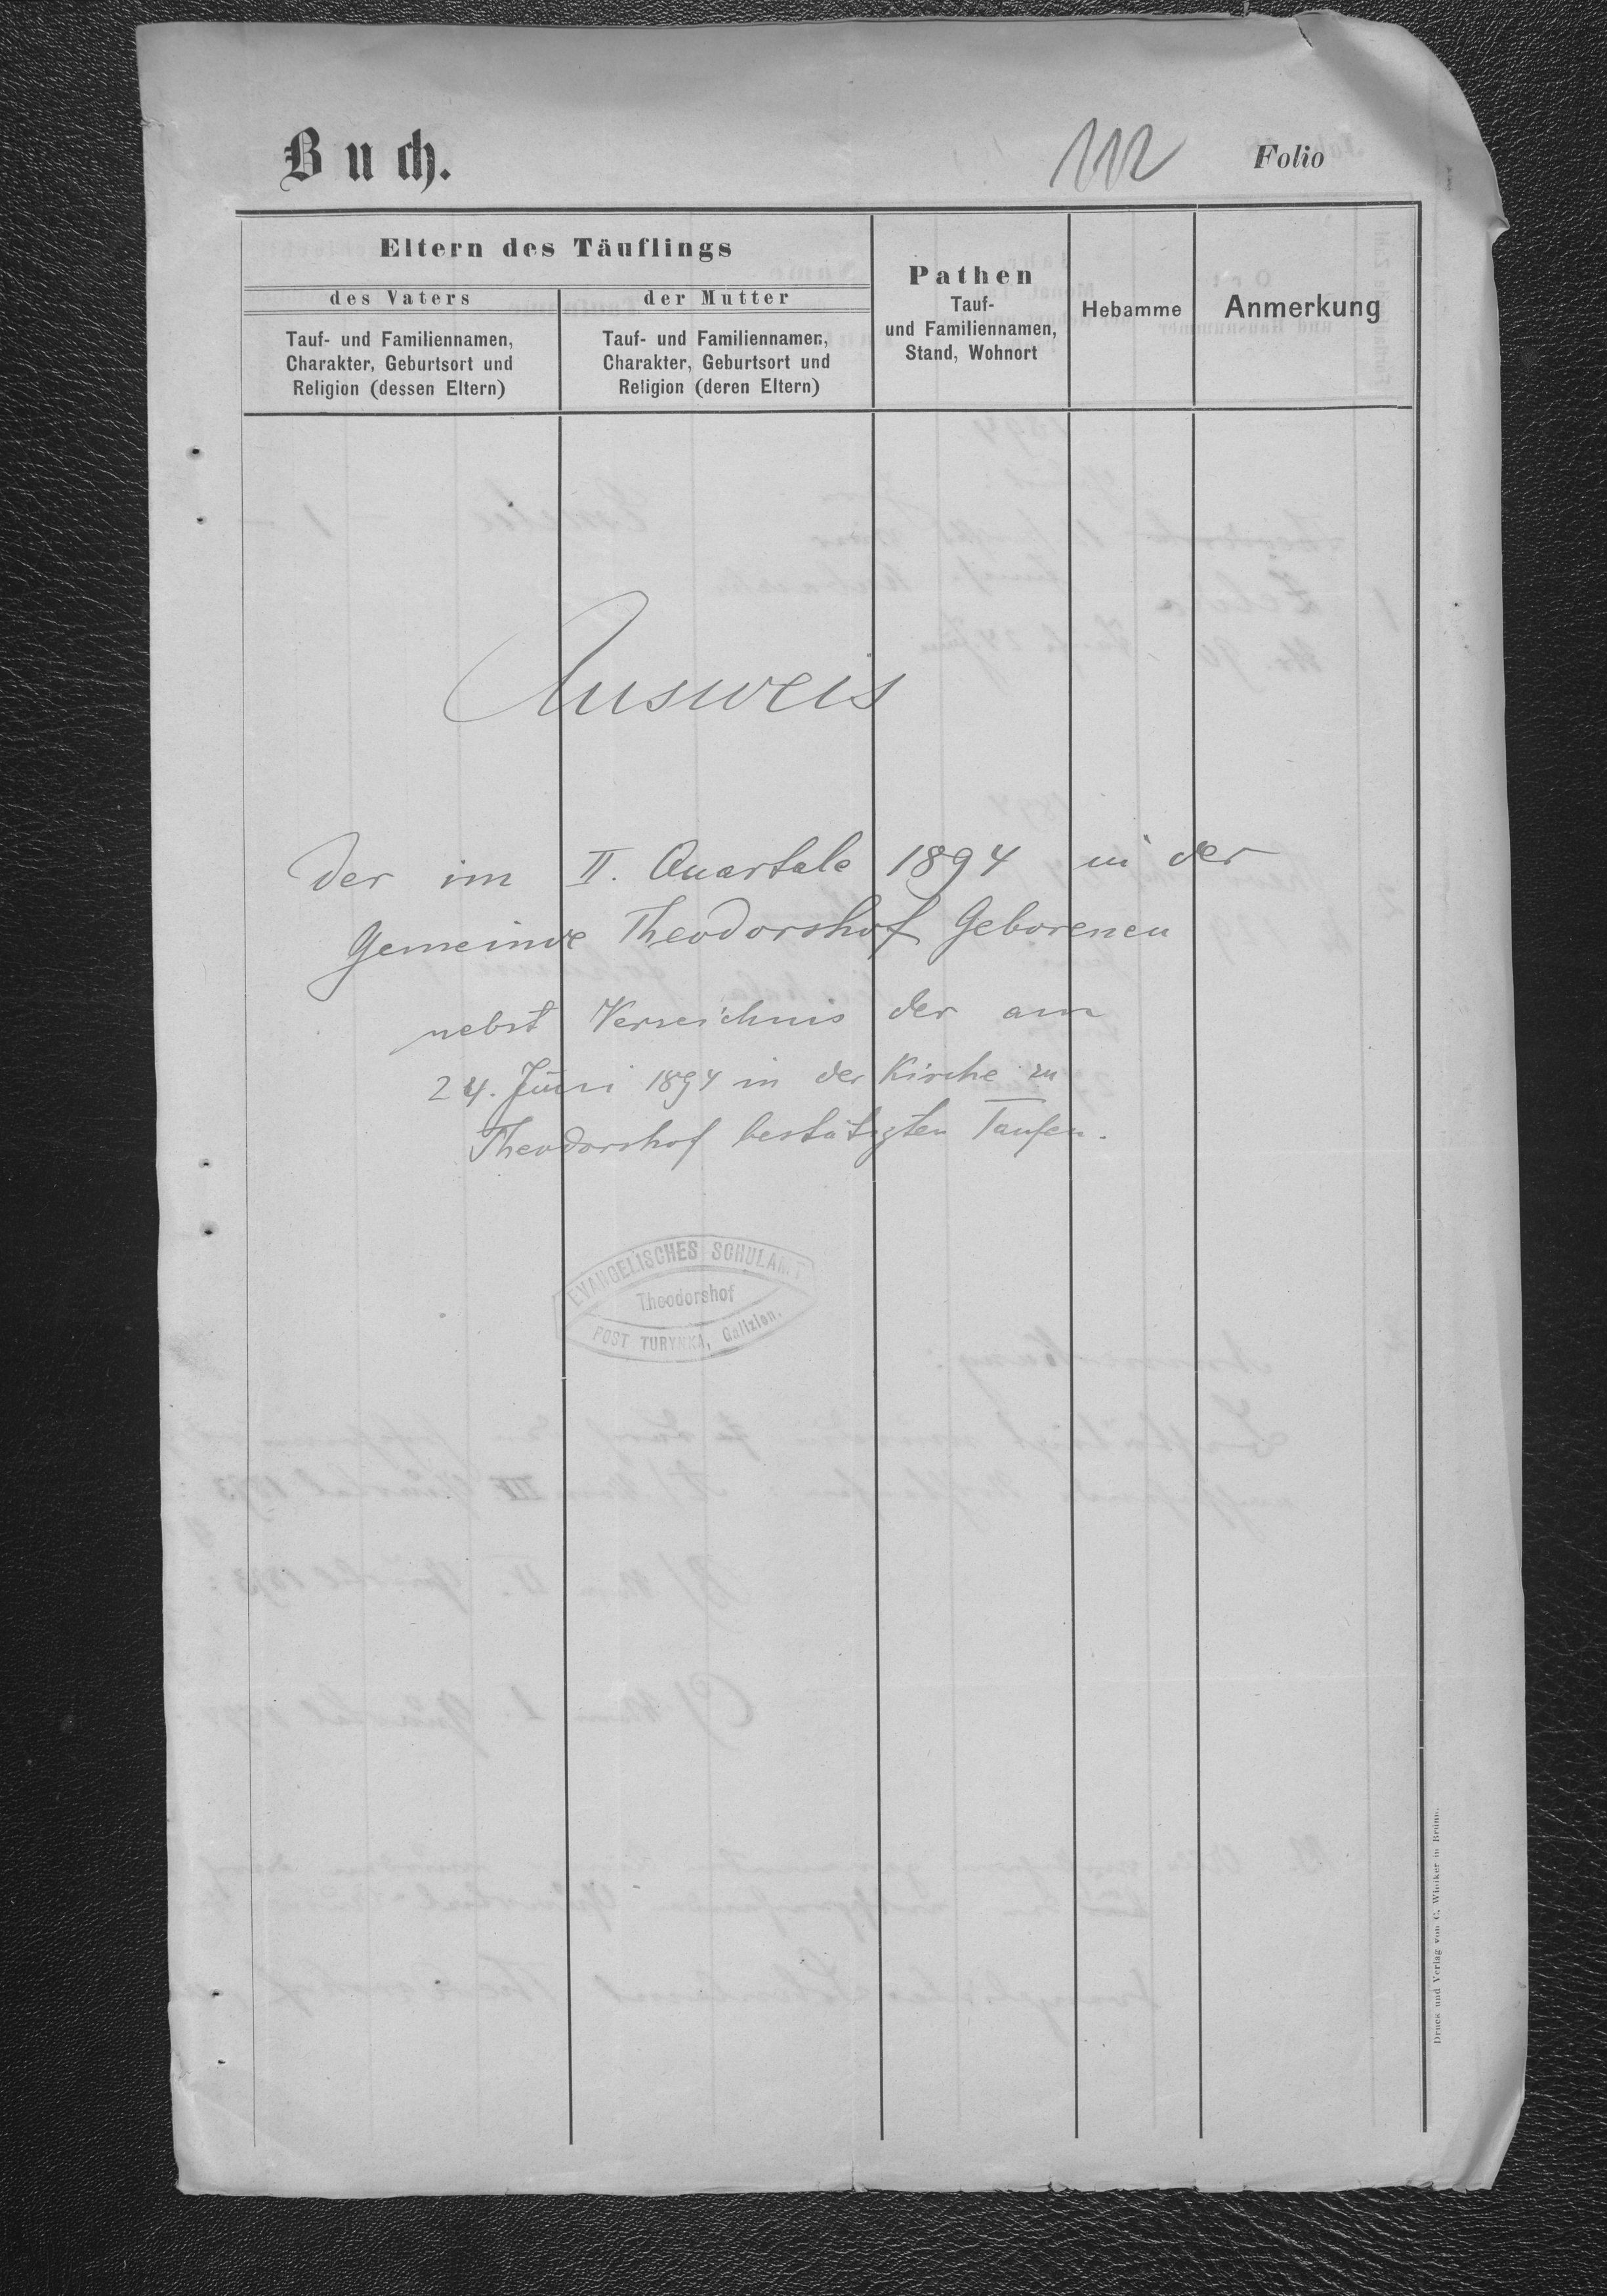 Buch.
112 Folio
Eltern des Täuflings
des Vaters
der Mutter
Tauf- und Familiennamen,
Charakter, Geburtsort und
Religion (dessen Eltern)
Tauf- und Familiennamen,
Charakter, Geburtsort und
Religion (deren Eltern)
Pathen
Tauf-
und Familiennamen,
Stand, Wohnort
Hebamme
Anmerkung
Ausweis
der im II. Quartale 1894 in der
Gemeinde Theodorshof Geborenen
nebst Verzeichnis der am
24. Juni 1894 in der Kirche zu
Theodorshof bestätigten Taufen.
EVANGELISCHES SCHULAMT
Theodorshof
POST TURYNKA, Galizien.
Druck und Verlag von C. Winiker in Brünn.